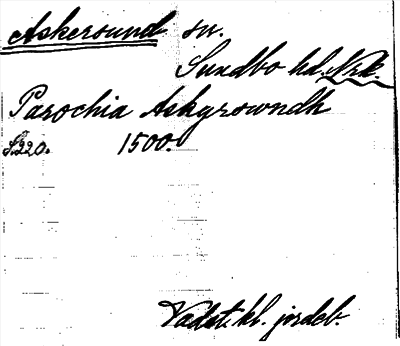 Askersund sn.
Sundbo hd. Nrk.
Parochia Askgrowndh
S.220. 1500.
Vadst. kl. jordeb.